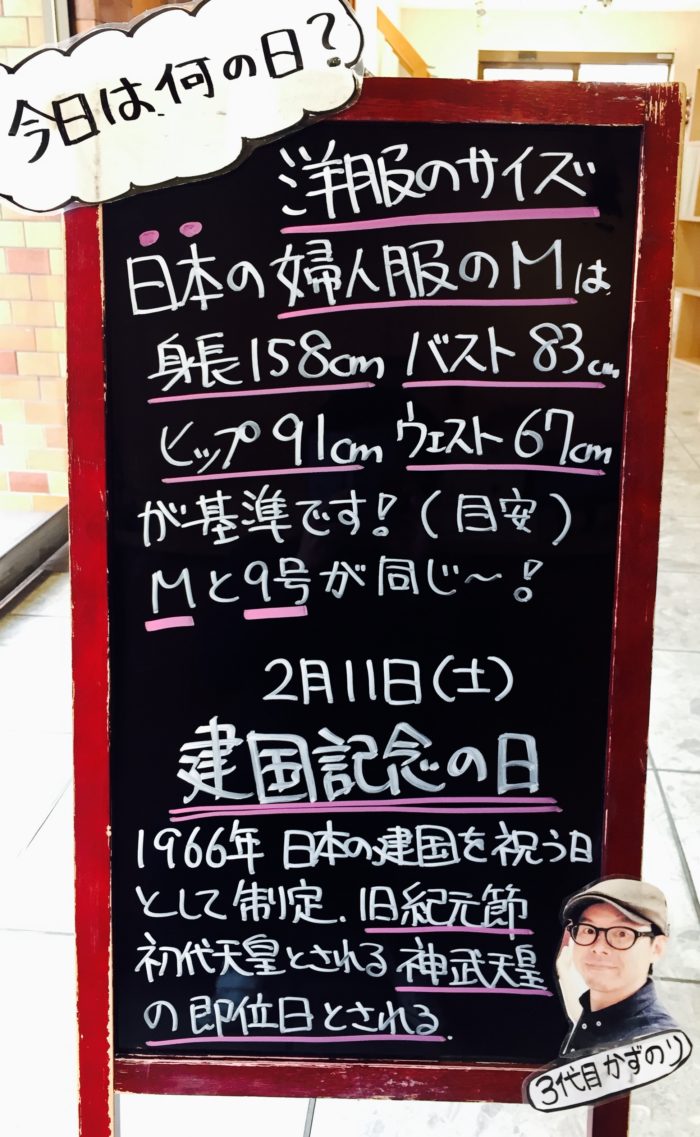 今日は何の日?
洋服のサイズ
日本の婦人服のMは
身長158cm バスト83cm
ヒップ91cm ウェスト67cm
が基準です!(目安)
Mと9号が同じ〜!
2月11日(土)
建国記念の日
1966年 日本の建国を祝う日
として制定.旧紀元節
初代天皇とされる神武天皇
の即位日とされる.
3代目かずのり